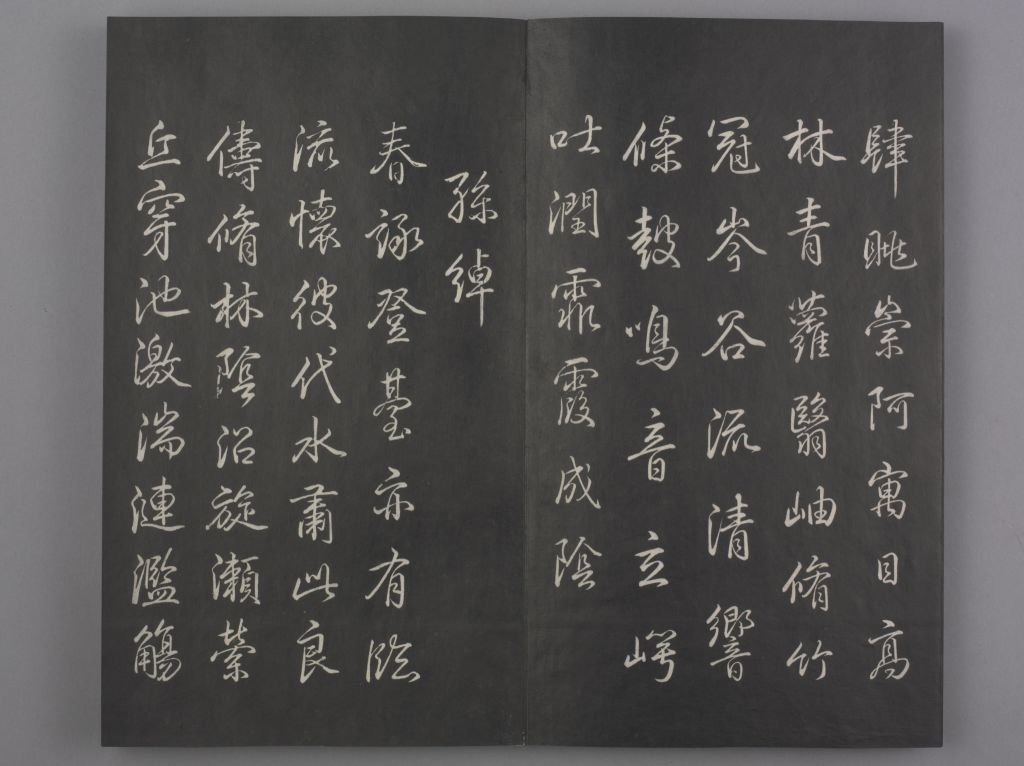 肆眺崇阿寓目高
林青蘿翳岫脩竹
冠岑谷流清響
條鼓鳴音立崿
吐潤霏霞成陰
孫綽
春詠登臺亦有臨
流懷彼伐水肅此良
儔脩林陰沼旋瀨縈
丘穿池激湍連濫觴